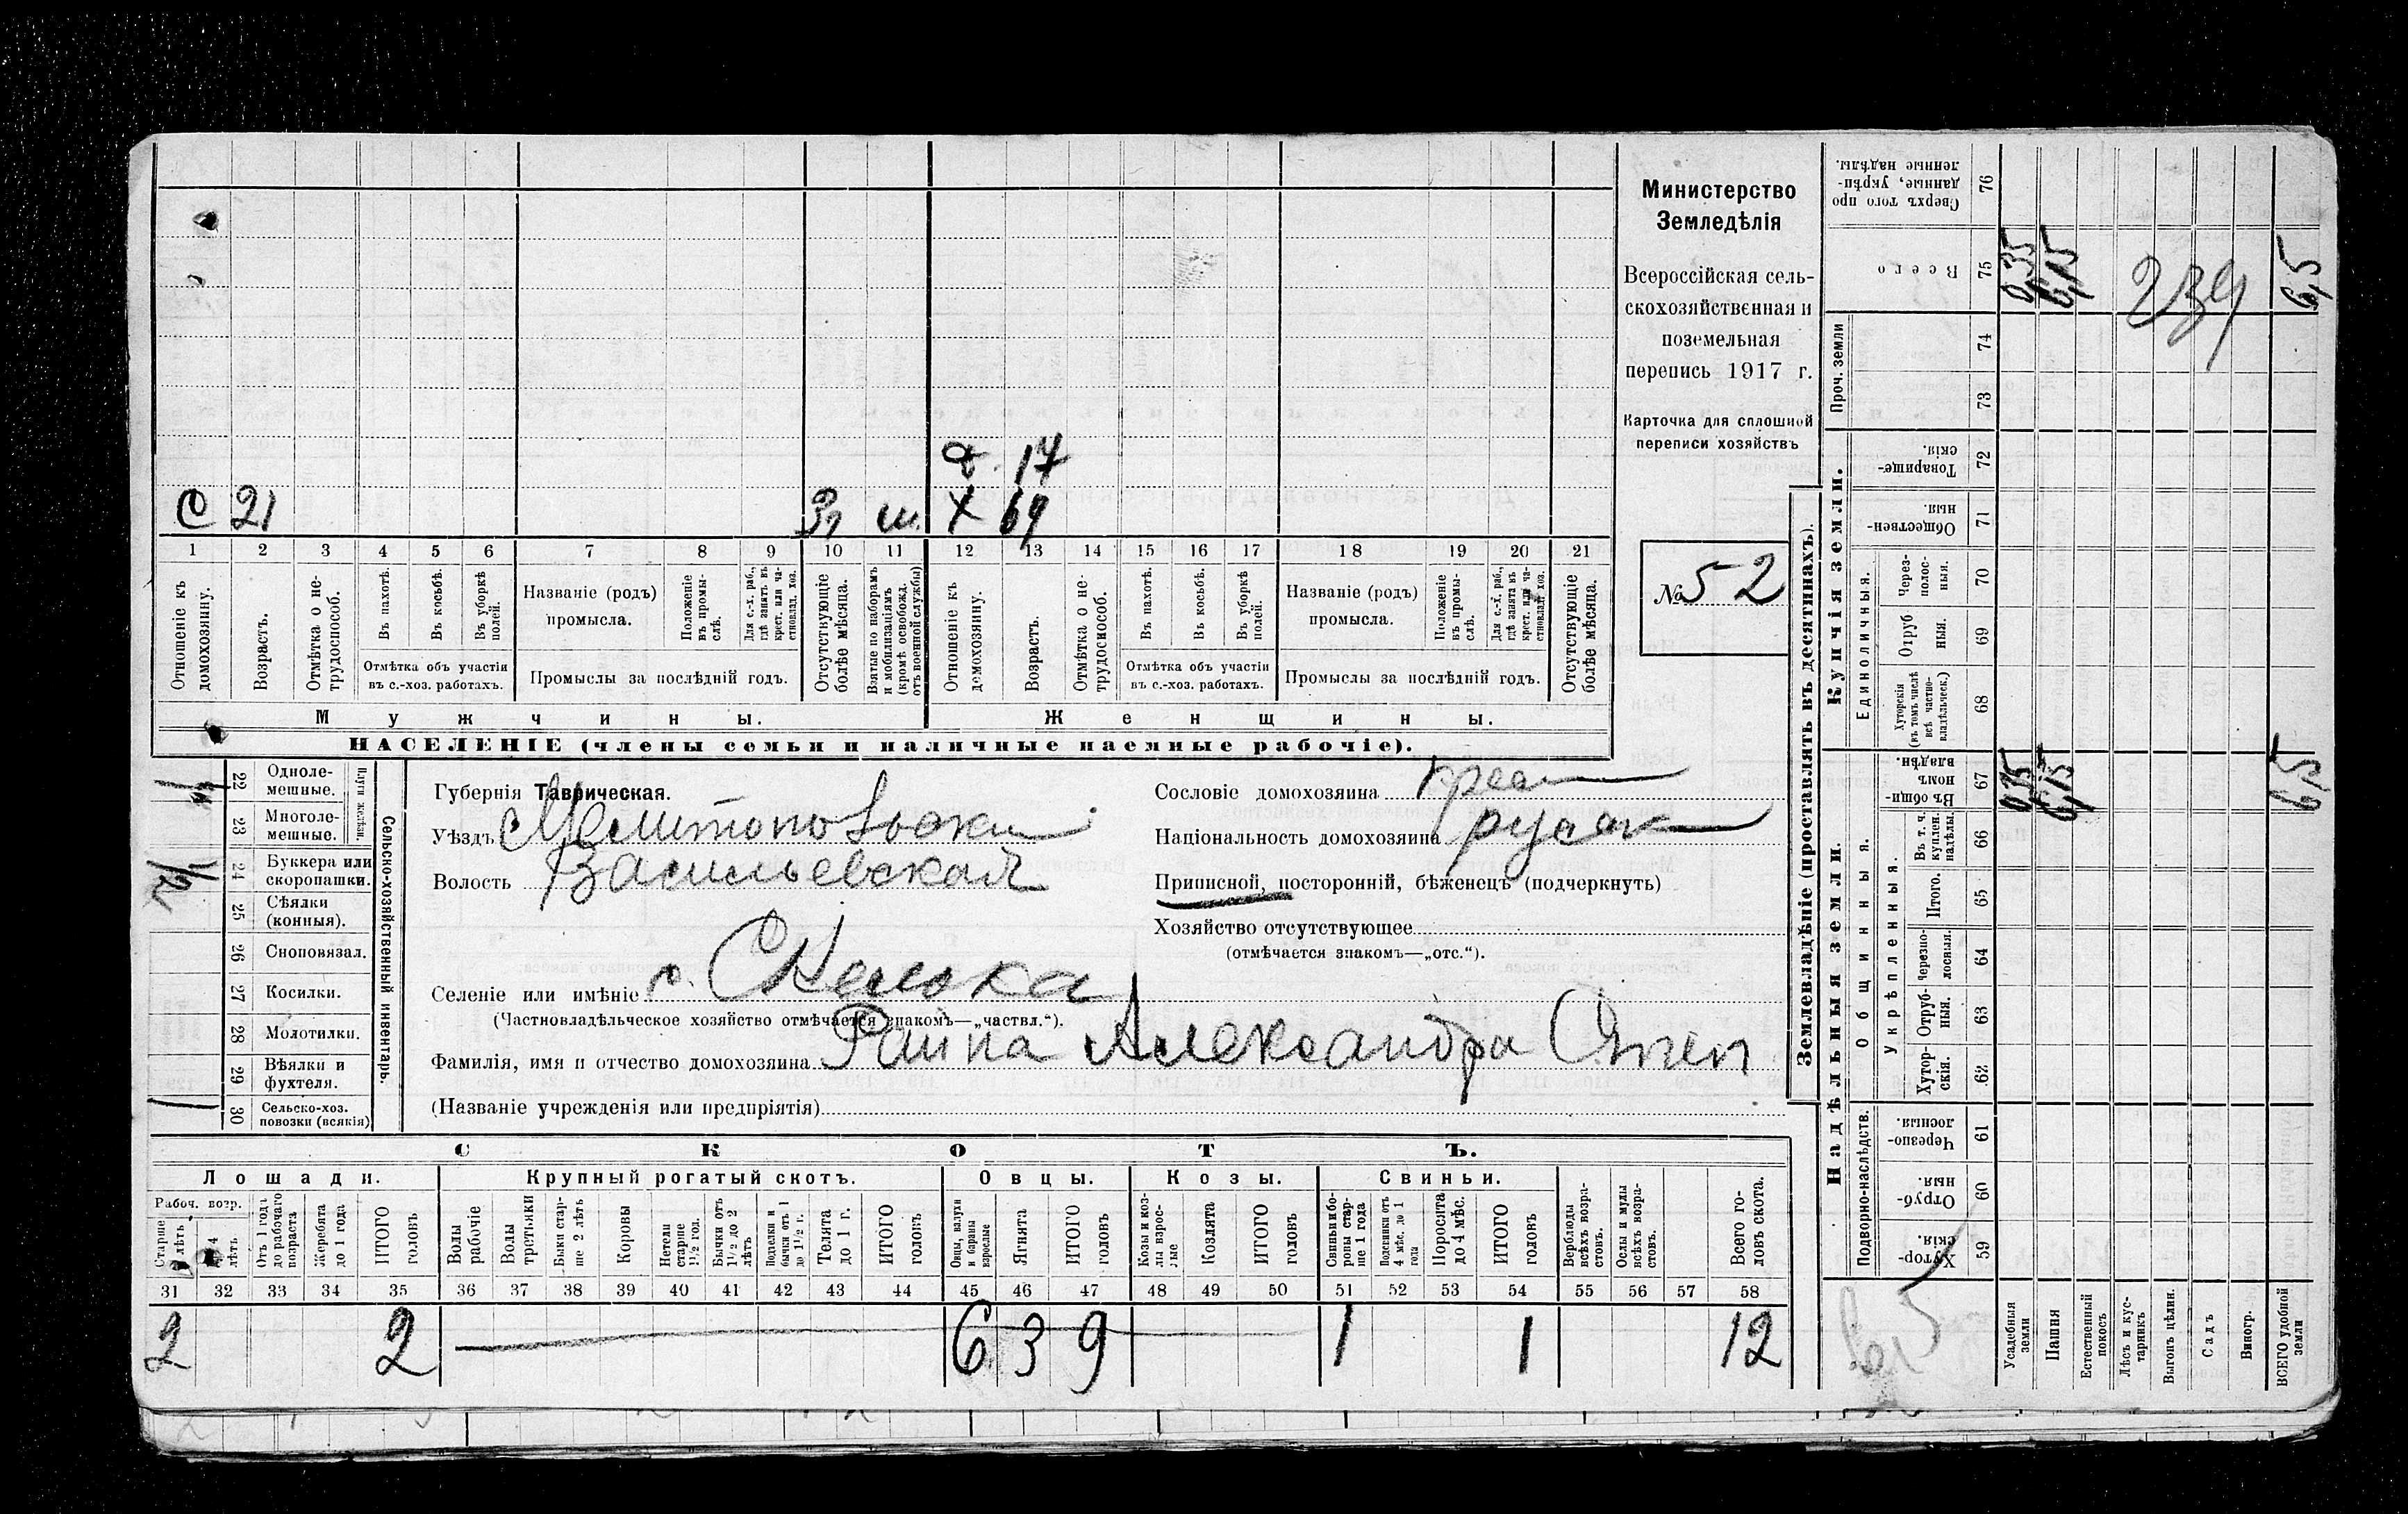 д. 17
С 21 Эп ш. Х 69
1 2 3 4 5 6 7 8 9 10 11 12 13 14 15 16 17 18 19 20 21
Отношеніе къ домохозяину.
Возрастъ.
Отмѣтка о не-
трудоспособ.
Въ пахотѣ.
Въ косьбѣ.
Въ уборкѣ
полей.
Отмѣтка объ участіи
въ с.-хоз. работахъ.
Названіе (родъ)
промысла.
Положеніе
въ промы-
слѣ.
Для с.-х. раб.,
гдѣ занятъ въ
крест. или ча-
стновлад. хоз.
Промыслы за послѣдній годъ.
Отсутствующіе
болѣе мѣсяца.
Взятые по наборамъ
и мобилизаціямъ
(кромѣ освобожд.
отъ военной службы)
Отношеніе къ
домохозяину.
Возрастъ.
Отмѣтка о не-
трудоспособ.
Въ пахотѣ.
Въ косьбѣ.
Въ уборкѣ
полей.
Отмѣтка объ участіи
въ с.-хоз. работахъ.
Названіе (родъ)
промысла.
Положеніе
въ промы-
слѣ.
Для с.-х. раб.,
гдѣ занята въ
крест. или ча-
стновлад. хоз.
Промыслы за послѣдній годъ.
Отсутствующіе
болѣе мѣсяца.
Мужчины.
Женщины.
НАСЕЛЕНІЕ (члены семьи и наличные наемные рабочіе).
Министерство
Земледѣлія
Всероссійская сель-
скохозяйственная и
поземельная
перепись 1917 г.
Карточка для сплошной
переписи хозяйствъ
№ 52
22 Одноле-
мешные.
23 Многоле-
мешные.
Плуги желѣзн.
24 Буккера или
скоропашки.
25 Сѣялки
(конныя).
26 Сноповязал.
27 Косилки.
28 Молотилки.
29 Вѣялки и
фухтеля.
1 30 Сельско-хоз.
повозки (всякія)
Сельско-хозяйственный инвентарь.
Губернія Таврическая.
Уѣздъ Мелитопольскій
Волость Васильевская
Селеніе или имѣніе с. Скелька
(Частновладѣльческое хозяйство отмѣчается знакомъ—„частвл.“).
Фамилія, имя и отчество домохозяина Александра Степ
(Названіе учрежденія или предпріятія)
Сословіе домохозяина крест
Національность домохозяина русск
Приписной, посторонній, бѣженецъ (подчеркнуть)
Хозяйство отсутствующее
(отмѣчается знакомъ—„отс.“).
СКОТЪ.
Лошади. Крупный рогатый скотъ. Овцы. Козы. Свиньи.
Рабоч. возр.
Старше
лѣтъ
4
лѣтъ
Отъ 1 года
до рабочаго
возраста
Жеребята
до 1 года
ИТОГО
головъ
Волы
рабочіе
Волы
третьяки
Быки стар-
ше 2 лѣтъ
Коровы
Нетели
старше
1½ год.
Бычки отъ
1½ до 2
лѣтъ
Подтелки и
бычки отъ 1
до 1½ г.
Телята
до 1 г.
ИТОГО
головъ
Овцы, валухи
и бараны
взрослые
Ягнята
ИТОГО
головъ
Козы и коз-
лы взрос-
лые
Козлята
ИТОГО
головъ
Свиньи и бо-
ровы стар-
ше 1 года
Подсвинки отъ
4 мѣс. до 1
года
Поросята
до 4 мѣс.
ИТОГО
головъ
Верблюды
всѣхъ возра-
стовъ.
Ослы и мулы
всѣхъ возра-
стовъ.
Всего го-
ловъ скота.
31 32 33 34 35 36 37 38 39 40 41 42 43 44 45 46 47 48 49 50 51 52 53 54 55 56 57 58
2 2 6 3 9 1 1 12
Землевладѣніе (проставлять въ десятинахъ).
Надѣльныя земли.
Купчія земли.
Проч. земли
Подворно-наслѣдств.
Общинныя.
Укрѣпленныя.
Единоличныя.
Сверхъ того про
данные, укрѣп-
ленные надѣлы.
76
Всего 75 0,35 6,15 6,5
239
74
73
Товарище-
скія.
72
Обществен-
ныя.
71
Через-
полос-
ныя.
70
Отруб
ныя.
69
Хуторскія
(въ томъ числѣ
всѣ частно-
владѣльческ.)
68
Въ общи-
номъ
владѣн.
67 0,35 6,15 6,5
Въ т. ч.
куплен.
надѣлы.
66
Итого.
65
Черезпо-
лосныя.
64
Отруб-
ныя.
63
Хутор-
скія.
62
Черезпо-
лосныя.
61
Отруб-
ныя.
60
Хутор-
скія.
59
Усадебныя
земли
Пашня
Естественный
покосъ
Лѣсъ и кус-
тарникъ
Выгонъ цѣлин.
Садъ
Виногр.
ВСЕГО удобной
земли